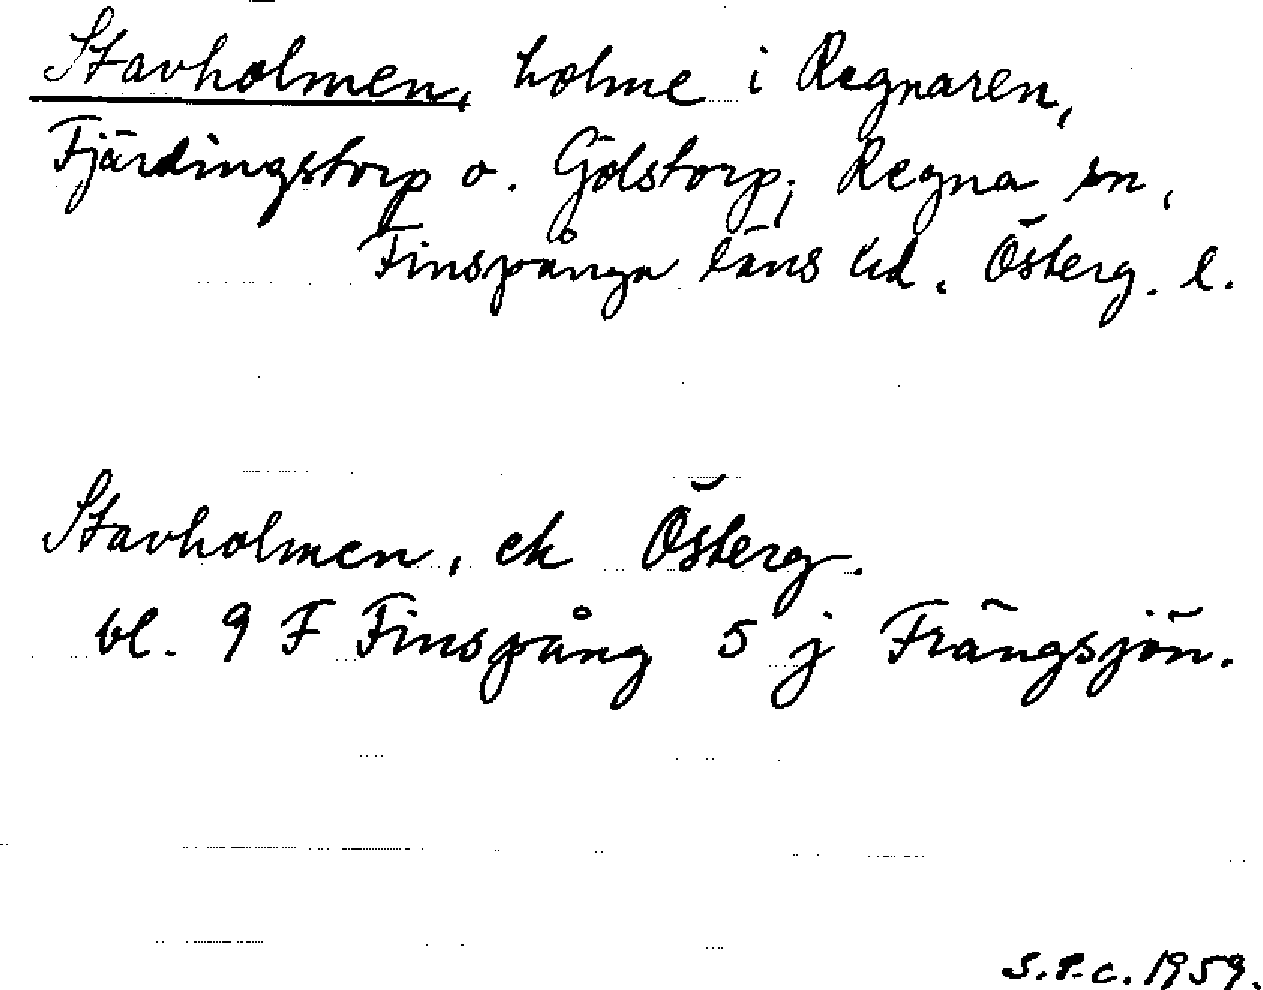 Stavholmen, holme i Regnaren,
Fjärdingstorp o. Gölstorp, Regna sn,
Finspånga läns hd. Österg. l.
Stavholmen, ek Österg.
bl. 9 F Finspång 5 j Frängsjön.
S.P.C. 1959.